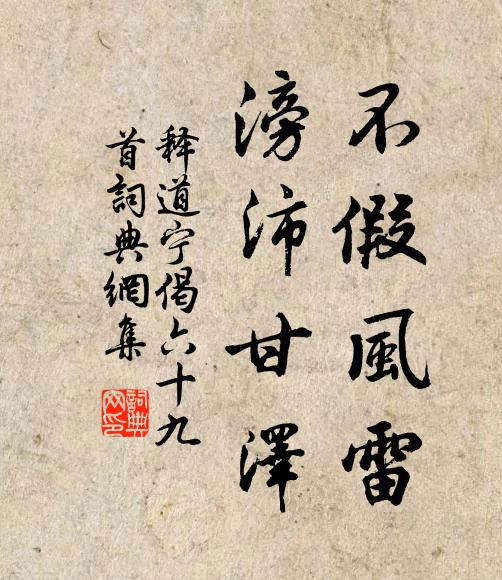 不假風雷
滂沛甘澤
释道宁偈六十九
首詞典網集
詞典
网印